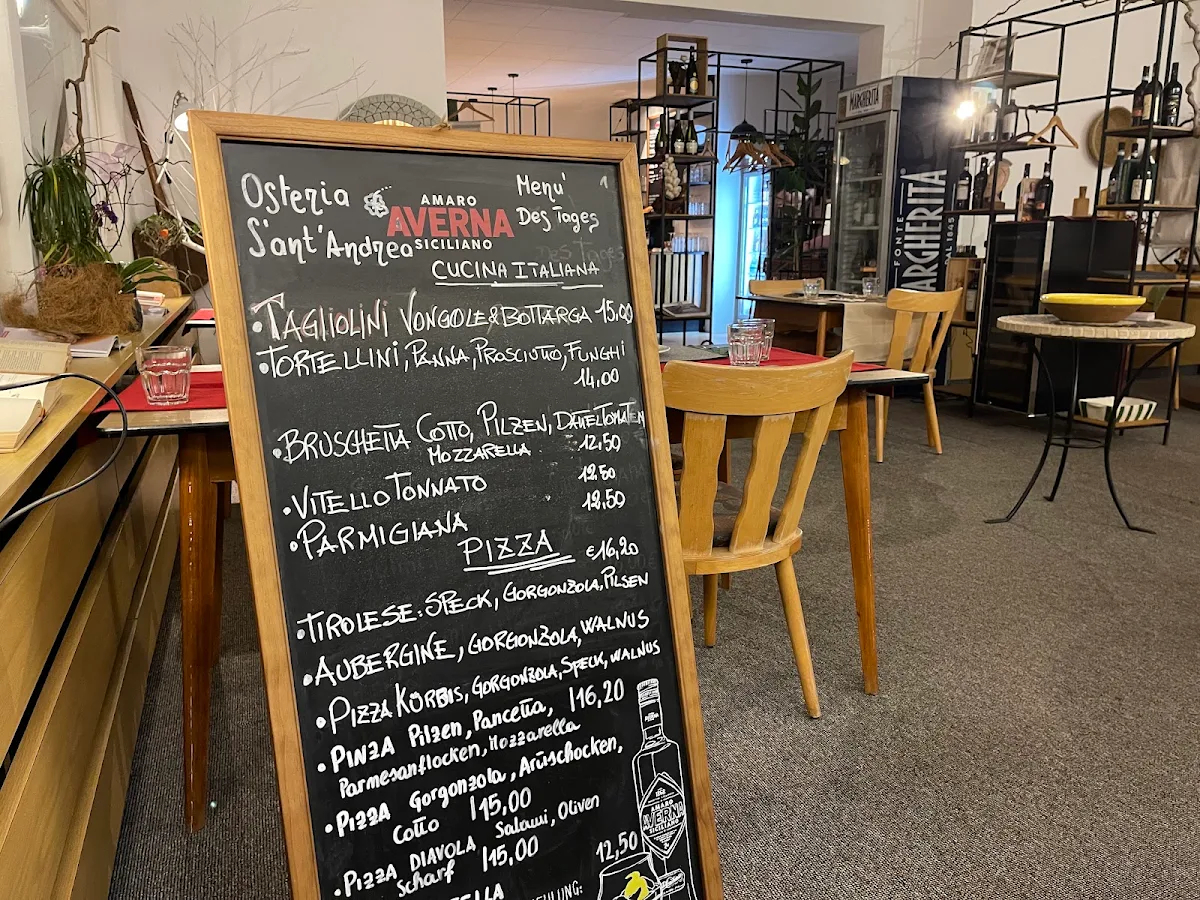 Osteria
S'ant'Andrea
AMARO
AVERNA
SICILIANO
Menu'
Des Tages
CUCINA ITALIANA
•TAGLIOLINI VONGOLE&BOTTARGA 15,00
•TORTELLINI, PANNA, PROSCIUTTO, FUNGHI
14,00
•BRUSCHETTA COTTO, PILZEN, DATTELTOMATEN
MOZZARELLA 12,50
•VITELLO TONNATO 12,50
•PARMIGIANA 12,50
PIZZA €16,20
•TIROLESE: SPECK, GORGONZOLA, PILSEN
•AUBERGINE, GORGONZOLA, WALNUS
•PIZZA KÜRBIS, GORGONZOLA, SPECK, WALNUS
•PINZA Pilzen, Pancetta, |16,20
Parmesanflocken, Mozzarella
•PIZZA Gorgonzola, Artischocken,
Cotto |15,00
•PIZZA DIAVOLA Salami, Oliven
Scharf |15,00
12,50
AMARO
AVERNA
SICILIANO
MARGHERITA
FONTE
MARGHERITA
DAL 1845